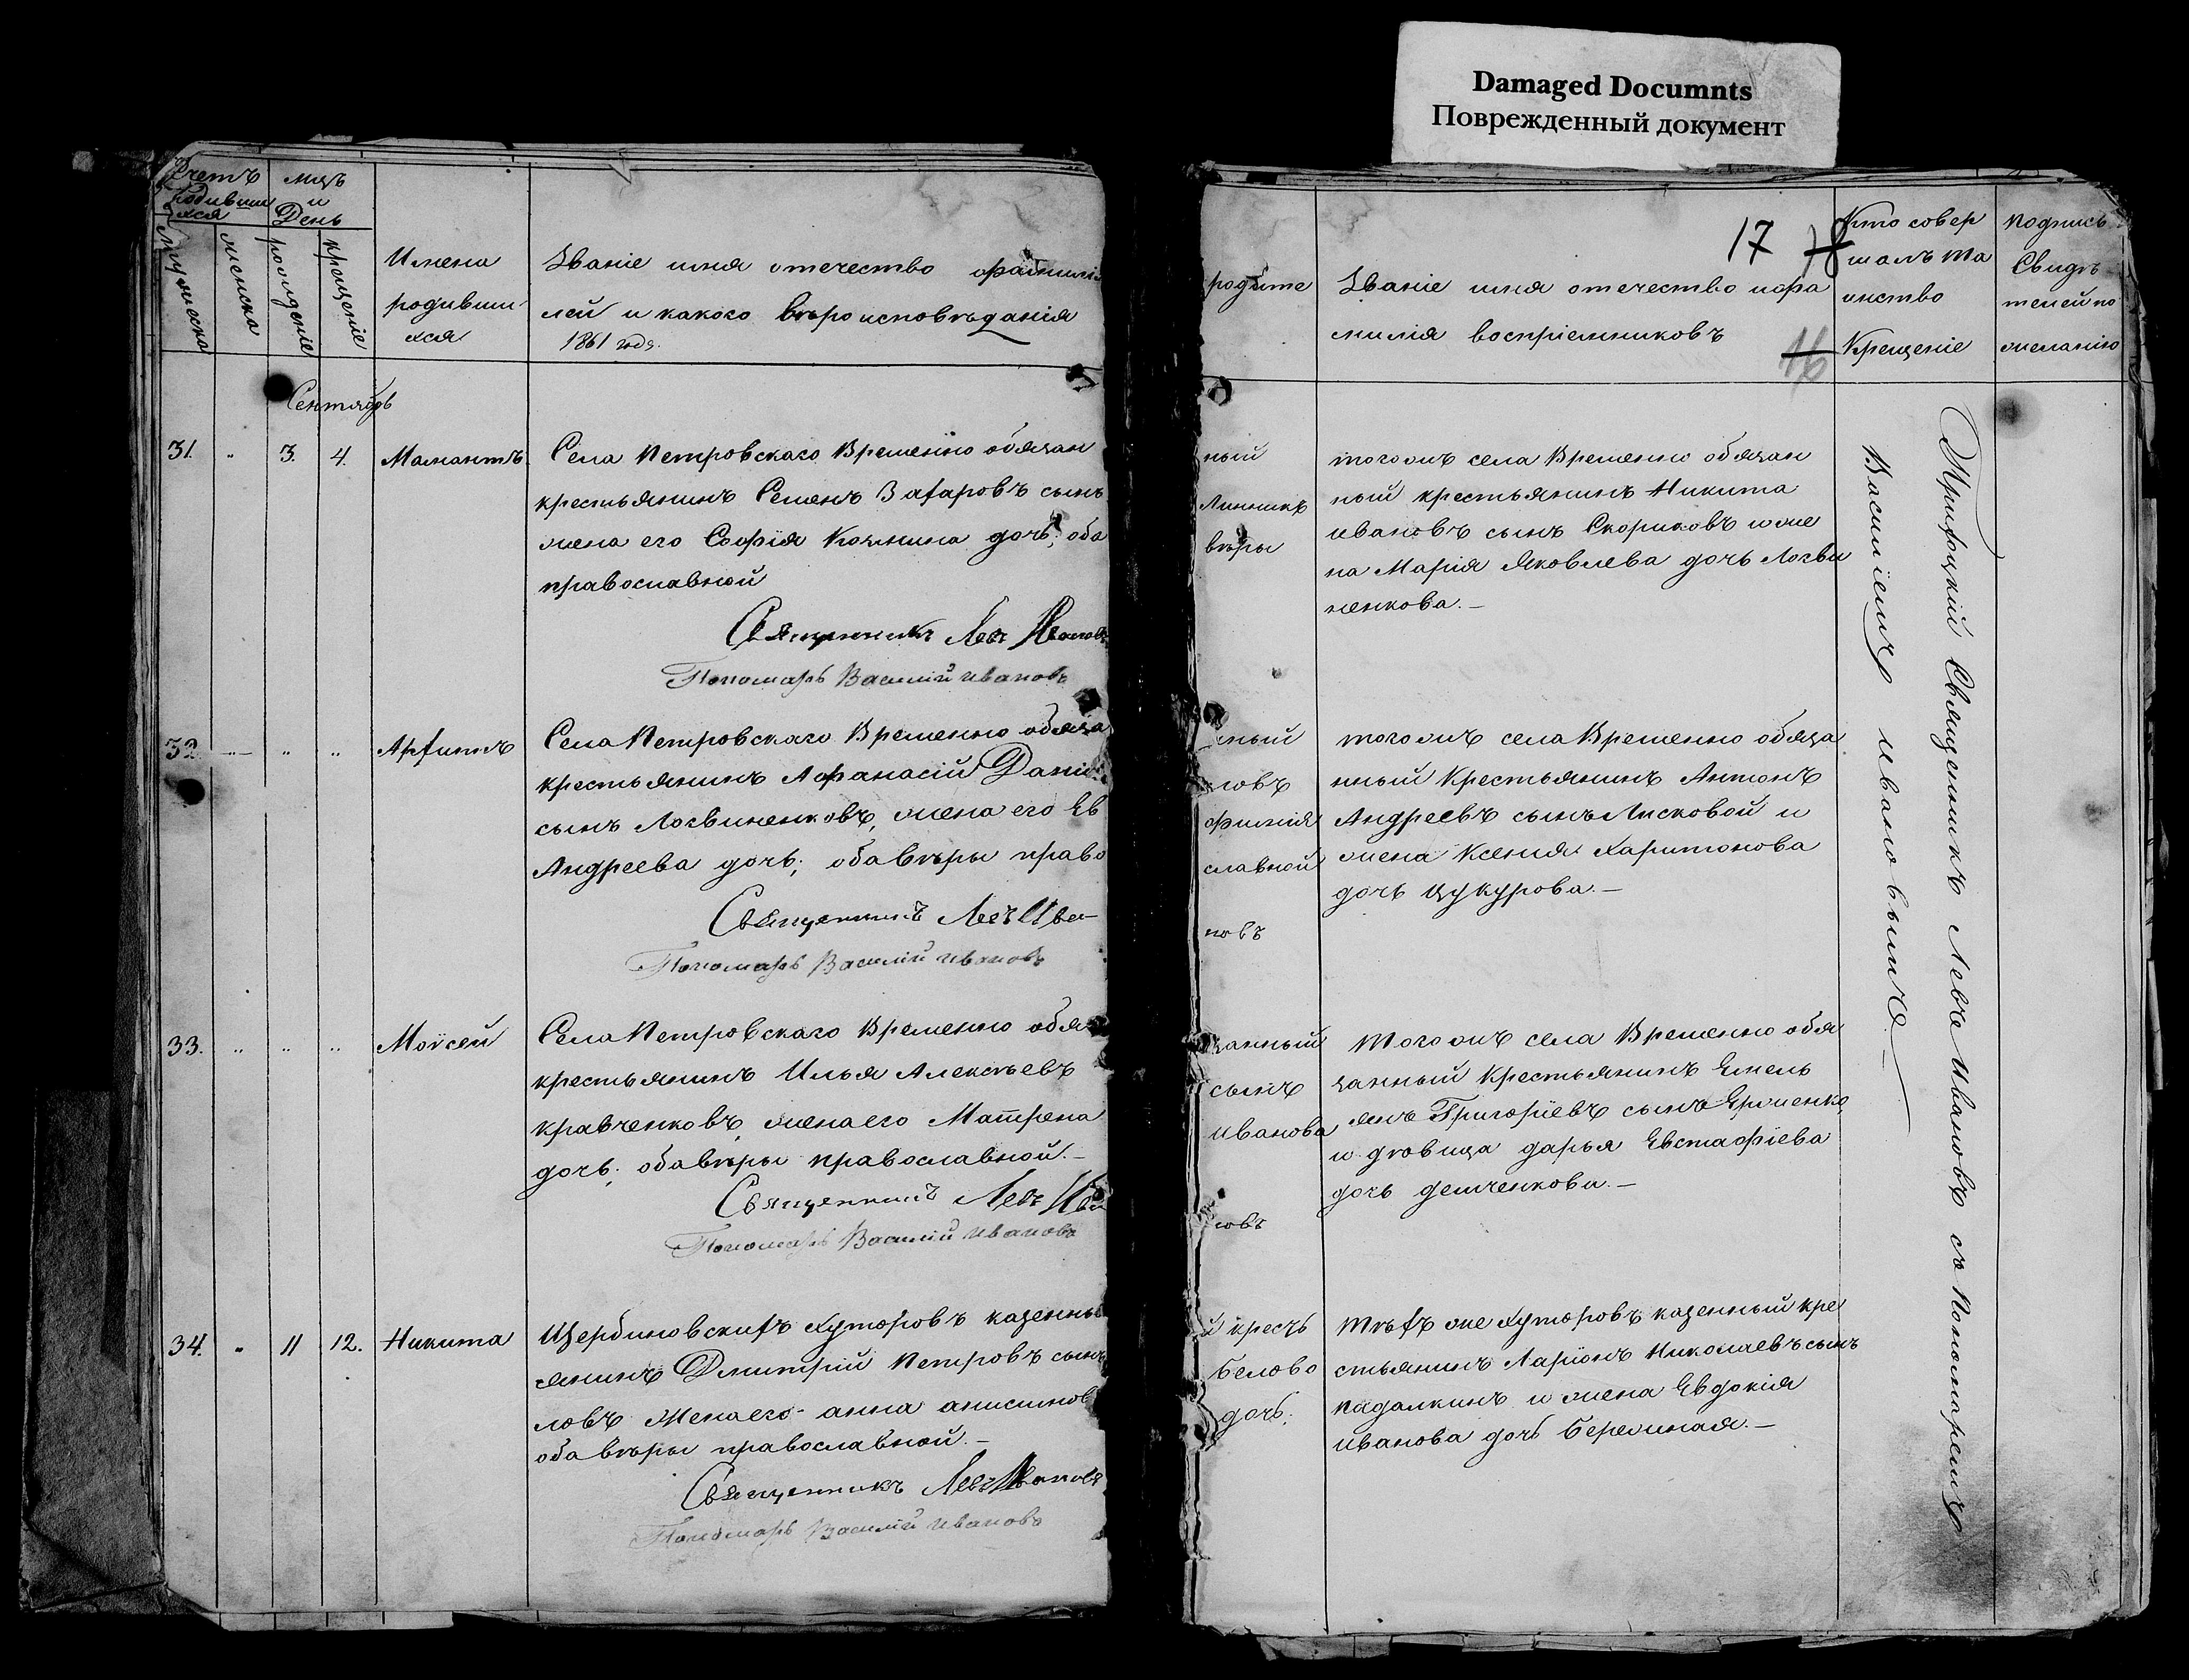 Damaged Documnts
Поврежденный документ
Счетъ
Родивши
хся
мцъ
и
День
мужеска
женска
рожденіе
крещеніе
Имена
родивши
хся
Званіе имя отечество фамилі
лей и какого вѣроисповѣданія
1861 года.
Сентябрь
31.
3.
4.
Мамантъ
Села Петровскаго Временно обязан
крестьянинъ Семенъ Захаровъ сынъ
жена его Софія Козмина дочь; оба
православной
Священникъ Левъ Иванов
Пономарь Василій Ивановъ
32
Архипъ
Села Петровскаго Временно обяза
крестьянинъ Афанасій Дани
сынъ Логвиненковъ, жена его Ев
Андреева дочь; оба вѣры право
Священникъ Левъ Ива-
Пономарь Василій Ивановъ
33.
Моѵсей
Села Петровскаго Временно обя
крестьянинъ Илья Алексѣевъ
кравченковъ, жена его Матрена
дочь; оба вѣры православной.-
Священникъ Левъ Ива
Пономарь Василій Ивановъ
34.
11
12.
Никита
Щербиновскихъ Хуторовъ казенны
янинъ Дмитрій Петровъ сынъ
ловъ жена его анна анисимов
оба вѣры православной.-
Священникъ Левъ Ивановъ
Пономарь Василій Ивановъ
родите
Званіе имя отечество и фа
милія воспріемниковъ
17
18
16
Кто совер
шалъ та
инство
Крещеніе
Подпись
Свидѣ
телей по
желанію
ный
Линникъ
вѣры
тогожъ села Временно обязан
ный крестьянинъ Никита
ивановъ сынъ Скориковъ и же
на Марія Яковлева дочь Логви
ненкова.-
ный
ловъ
фимія
славной
новъ
тогожъ села Временно обяза
нный Крестьянинъ Антонъ
Андреевъ сынъ Лисковой и
жена Ксения Харитонова
дочь Цукурова.-
занный
сынъ
Иванова
новъ
Тогожъ села Временно обя
занный Крестьянинъ Емель
янъ Григоріевъ сынъ Ерменко,
и дѣвица дарья Евстафіева
дочь демченкова.-
й кресть
Белово
дочь;
Тѣхъ же Хуторовъ казенный кре
стьянинъ Ларіонъ Николаевъ сынъ
падалкинъ и жена Евдокія
иванова дочь Бережная.-
Приходскій Священникъ Левъ Ивановъ съ Пономаремъ
Василіемъ Ивановымъ.-